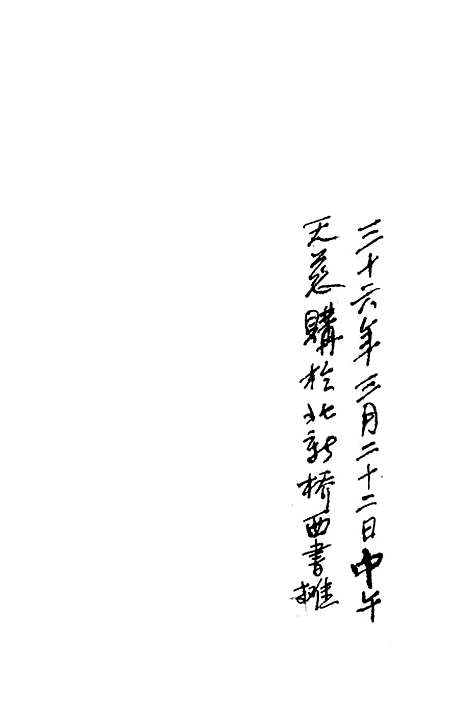 三十六年三月二十二日中午
天慈購於北新橋西書攤